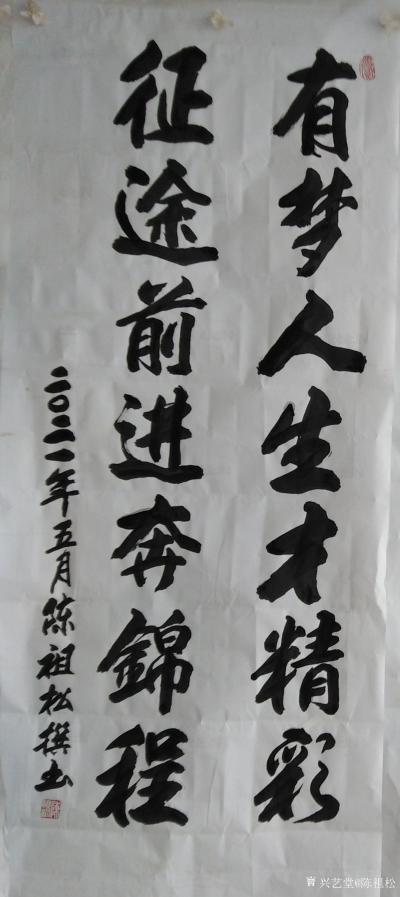 有梦人生才精彩
征途前进奔錦程
二〇二一年五月陈祖松撰书
兴艺堂@陈祖松